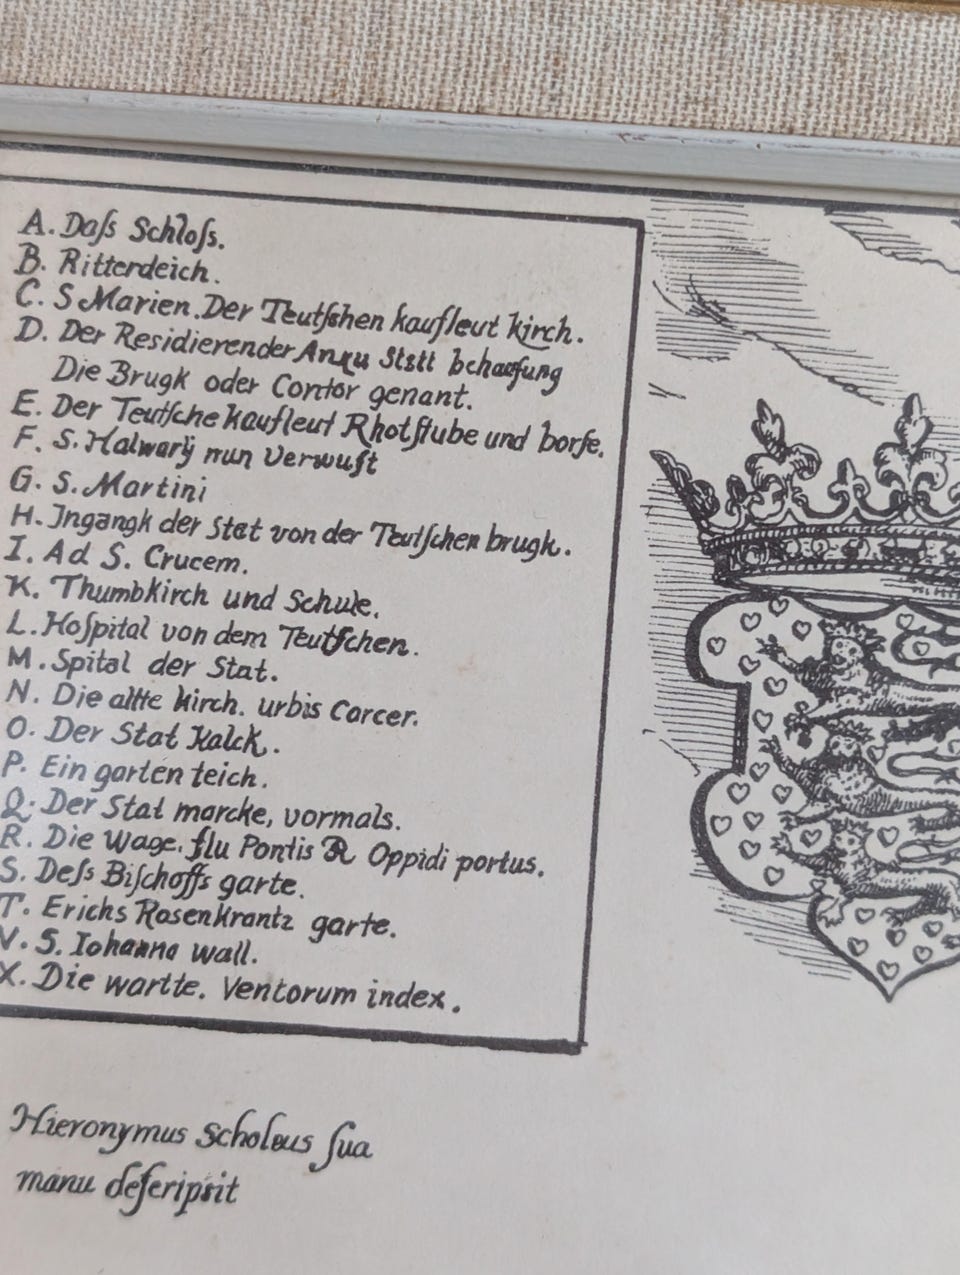 A. Daſs Schloſs.
B. Ritterdeich.
C. S Marien. Der Teutſchen kaufleut kirch.
D. Der Residierender behaufung
Die Brugk oder Contor genant.
E. Der Teutſche kaufleut Rhotſtube und borſe.
F. S. Halwarÿ nun verwuſt
G. S. Martini
H. Ingangk der Stat von der Teutſchen brugk.
I. Ad S. Crucem.
K. Thumbkirch und Schule.
L. Hoſpital von dem Teutſchen.
M. Spital der Stat.
N. Die altte kirch. urbis Carcer.
O. Der Stat Kalck.
P. Ein garten teich.
Q. Der Stat marcke, vormals.
R. Die Wage. flu Pontis R Oppidi portus.
S. Deſs Biſchoffs garte.
T. Erichs Rosenkrantz garte.
V. S. Iohanna wall.
X. Die wartte. Ventorum index.
Hieronymus Scholeus ſua
manu deſeripsit